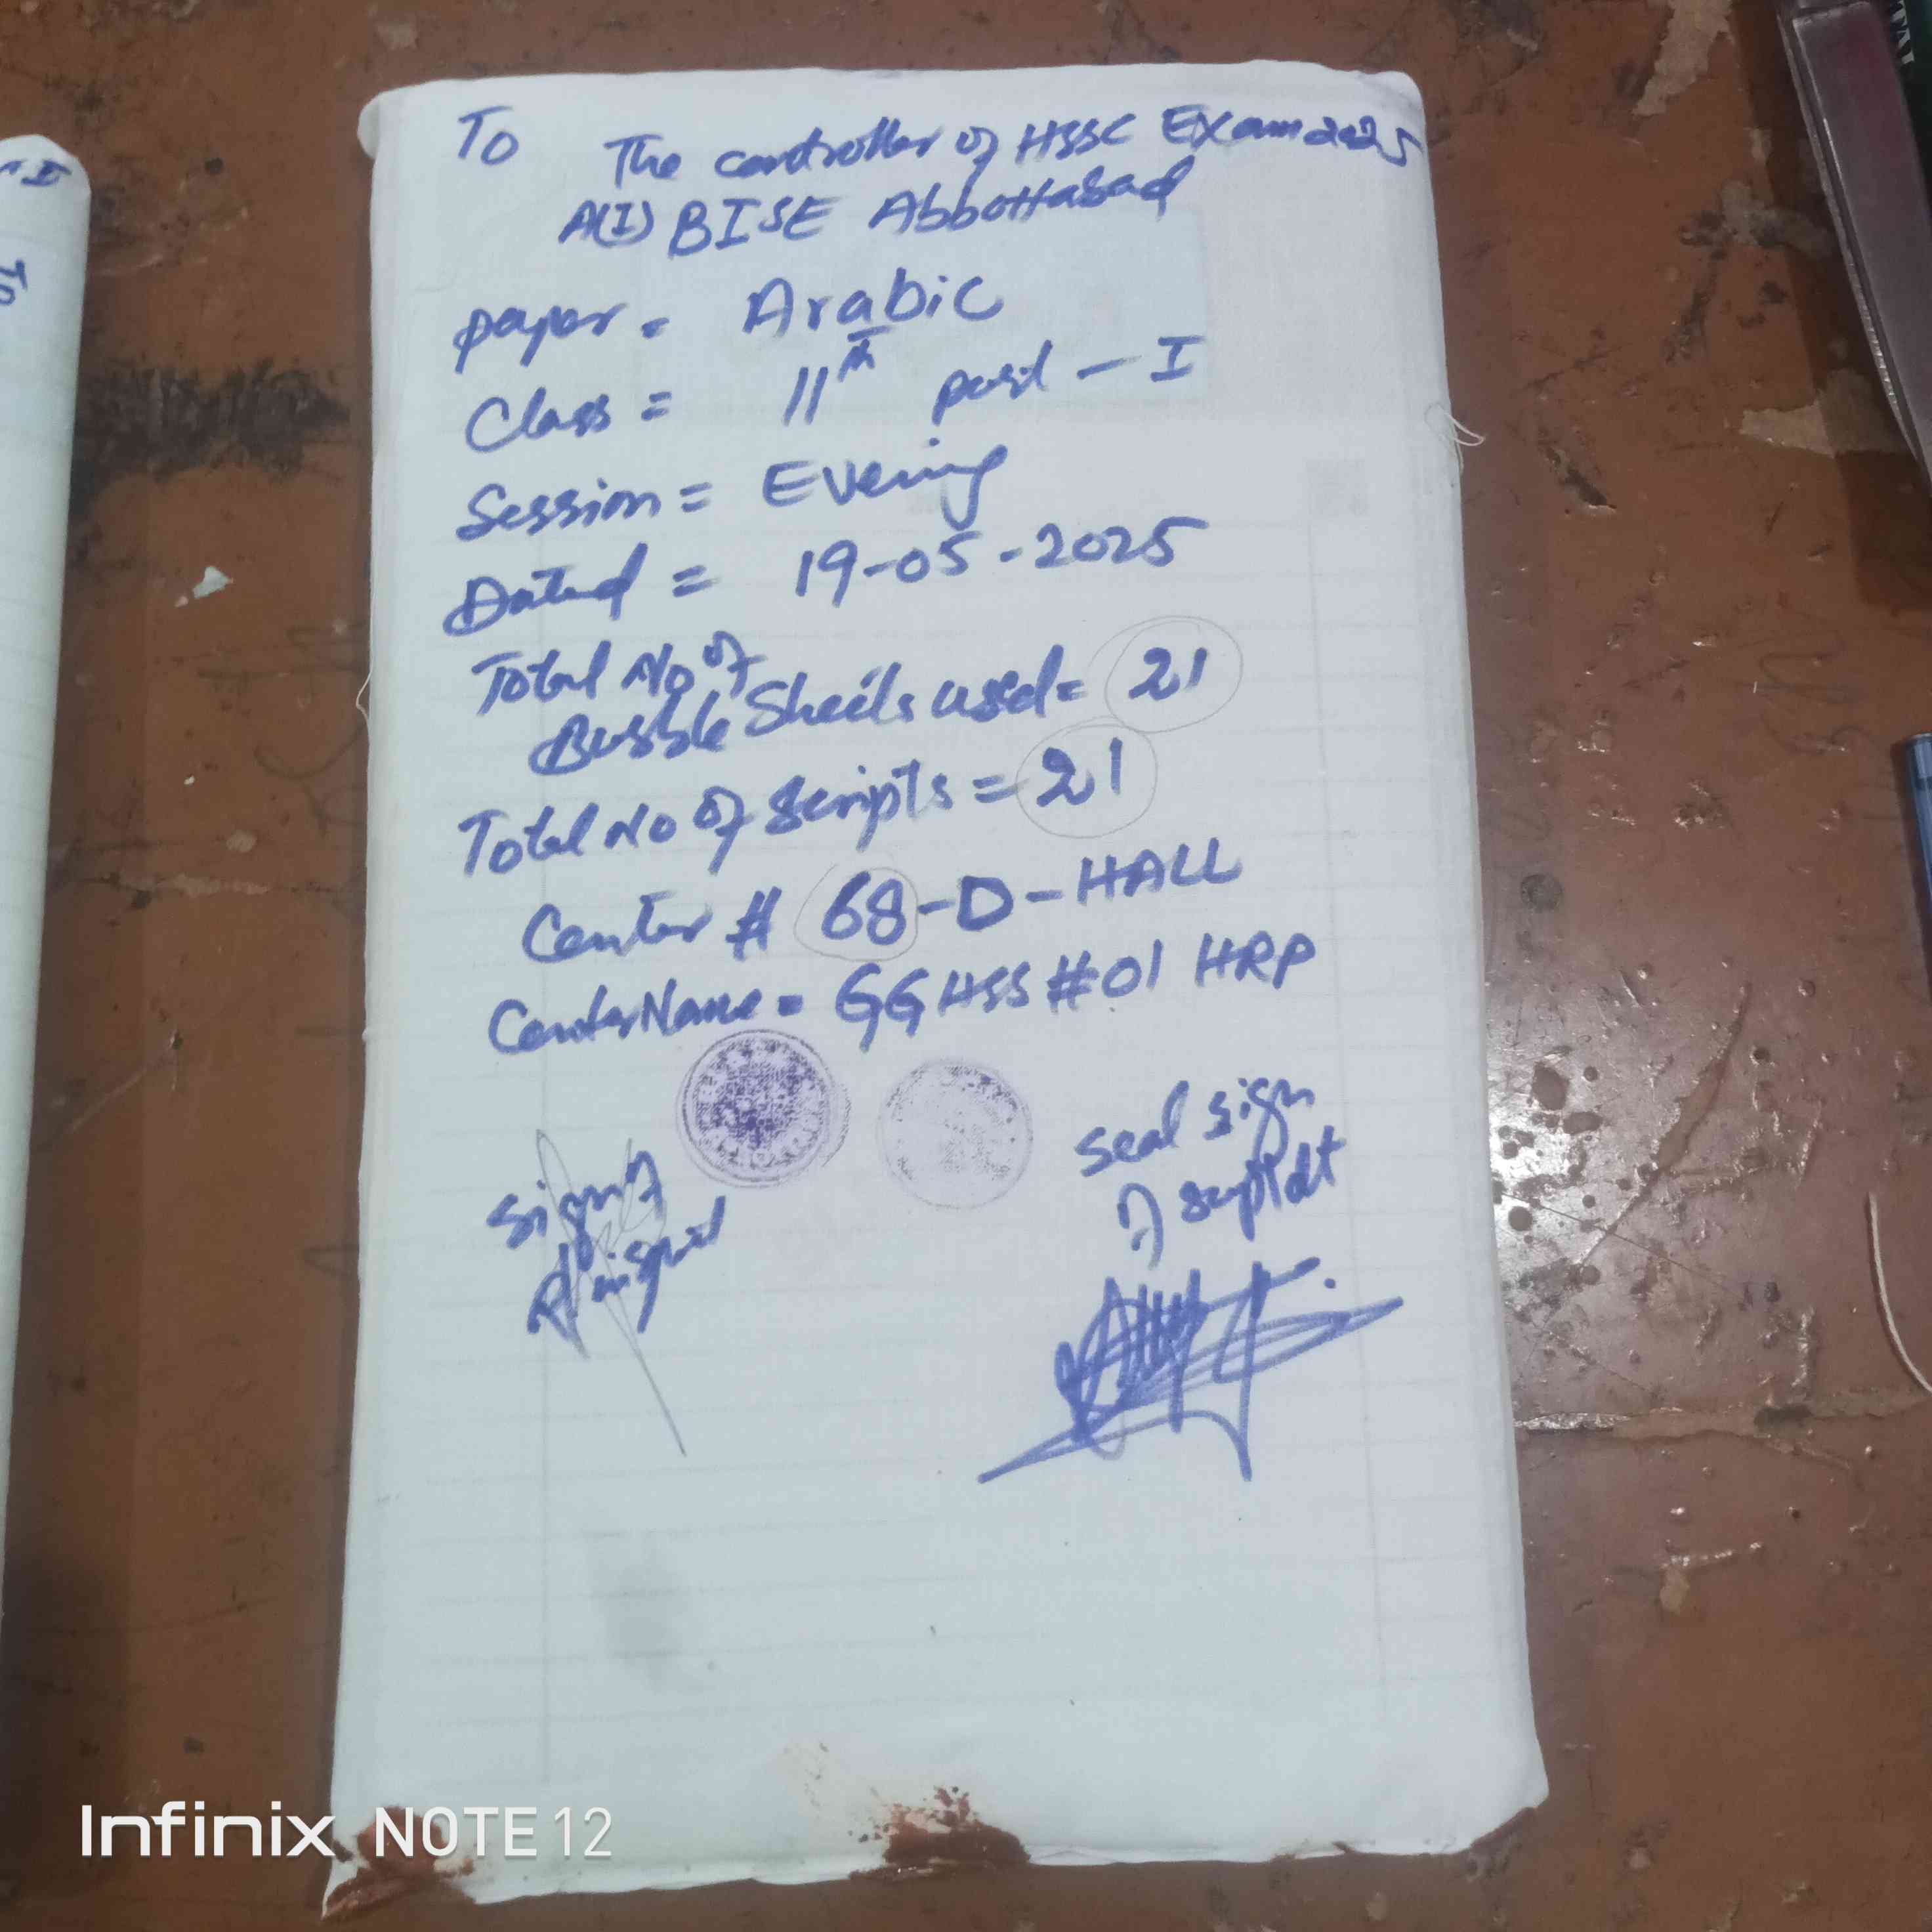 To
The controller of HSSC Exam 2025
A(I) BISE Abbottabad
paper = Arabic
Class = 11th part - I
Session = Evening
Dated = 19-05-2025
Total No of
Bubble Sheets used = 21
Total No of Scripts = 21
Center # 68-D-HALL
Center Name = GGHSS #01 HRP
seal sign
of suptdt
sign of
To
TAL
Infinix NOTE 12